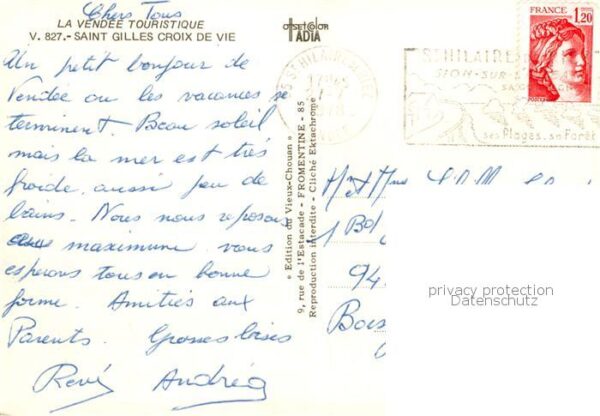 Chers Tous
LA VENDÉE TOURISTIQUE
V. 827.- SAINT GILLES CROIX DE VIE
offset color
IADIA
Un petit bonjour de
Vendée ou les vacances se
terminent. Beau soleil
mais la mer est très
froide, aussi peu de
bains. Nous nous reposons
au maximum. vous
esperons tous en bonne
forme. Amitiés aux
Parents. Grosses bises
René Andréa
« Edition du Vieux-Chouan »
9, rue de l'Estacade - FROMENTINE - 85
Reproduction interdite - Cliché Ektachrome
85 ST HILAIRE DE RIEZ
1978
ST HILAIRE
SION-SUR-L
ses Plages, sa Forêt
FRANCE
1,20
POSTES
Mr et Mme
1 Bd
94
Bois
privacy protection
Datenschutz